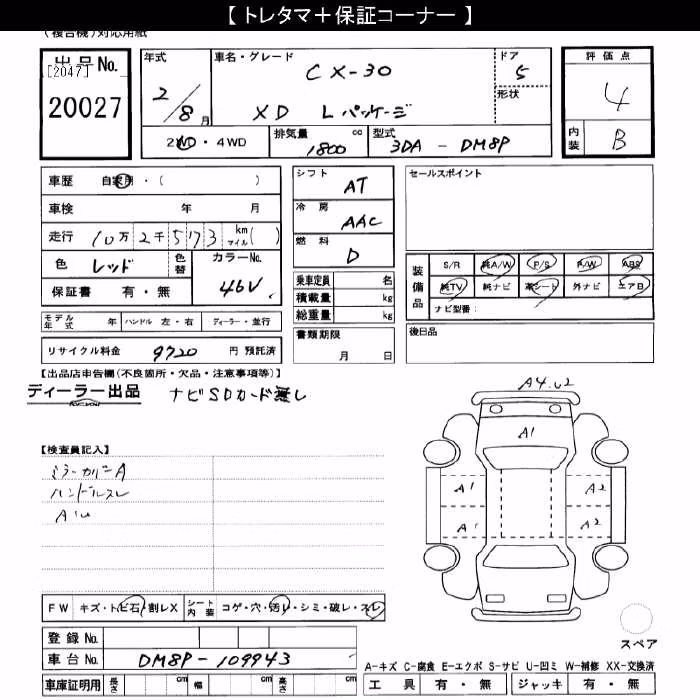 【 トレタマ＋保証コーナー 】
(複合機)対応用紙
出品No.
[2047]
20027
年式
2/8月
車名・グレード
CX-30
XD Lパッケージ
ドア
5
形状
評価点
4
内装
B
2WD・4WD
排気量
1800 cc
型式
3DA - DM8P
車歴 自家用・( )
車検 年 月
走行 10万2千573 km マイル( )
色 レッド
色替
カラーNo.
46V
保証書 有・無
モデル年式 年 ハンドル 左・右 ディーラー・並行
リサイクル料金 9720 円 預託済
シフト
AT
冷房
AAC
燃料
D
乗車定員 名
積載量 kg
総重量 kg
書類期限
月 日
セールスポイント
装備品
S/R 純A/W P/S P/W ABS
純TV 純ナビ 革シート 外ナビ エアB
ナビ型番：
後日品
【出品店申告欄(不良箇所・欠品・注意事項等)】
ディーラー出品 ナビSDカード無し
【検査員記入】
ミラーカバーA
ハンドルスレ
A1 A4.U2
A1 A2
A1 A2
FW キズ・トビ石・割レX シート内装 コゲ・穴・汚レ・シミ・破レ・スレ
登録 No.
車台 No. DM8P-109943
スペア
A-キズ C-腐食 E-エクボ S-サビ U-凹ミ W-補修 XX-交換済
車庫証明用 長さ cm 幅 cm 高さ cm
工具 有・無 ジャッキ 有・無